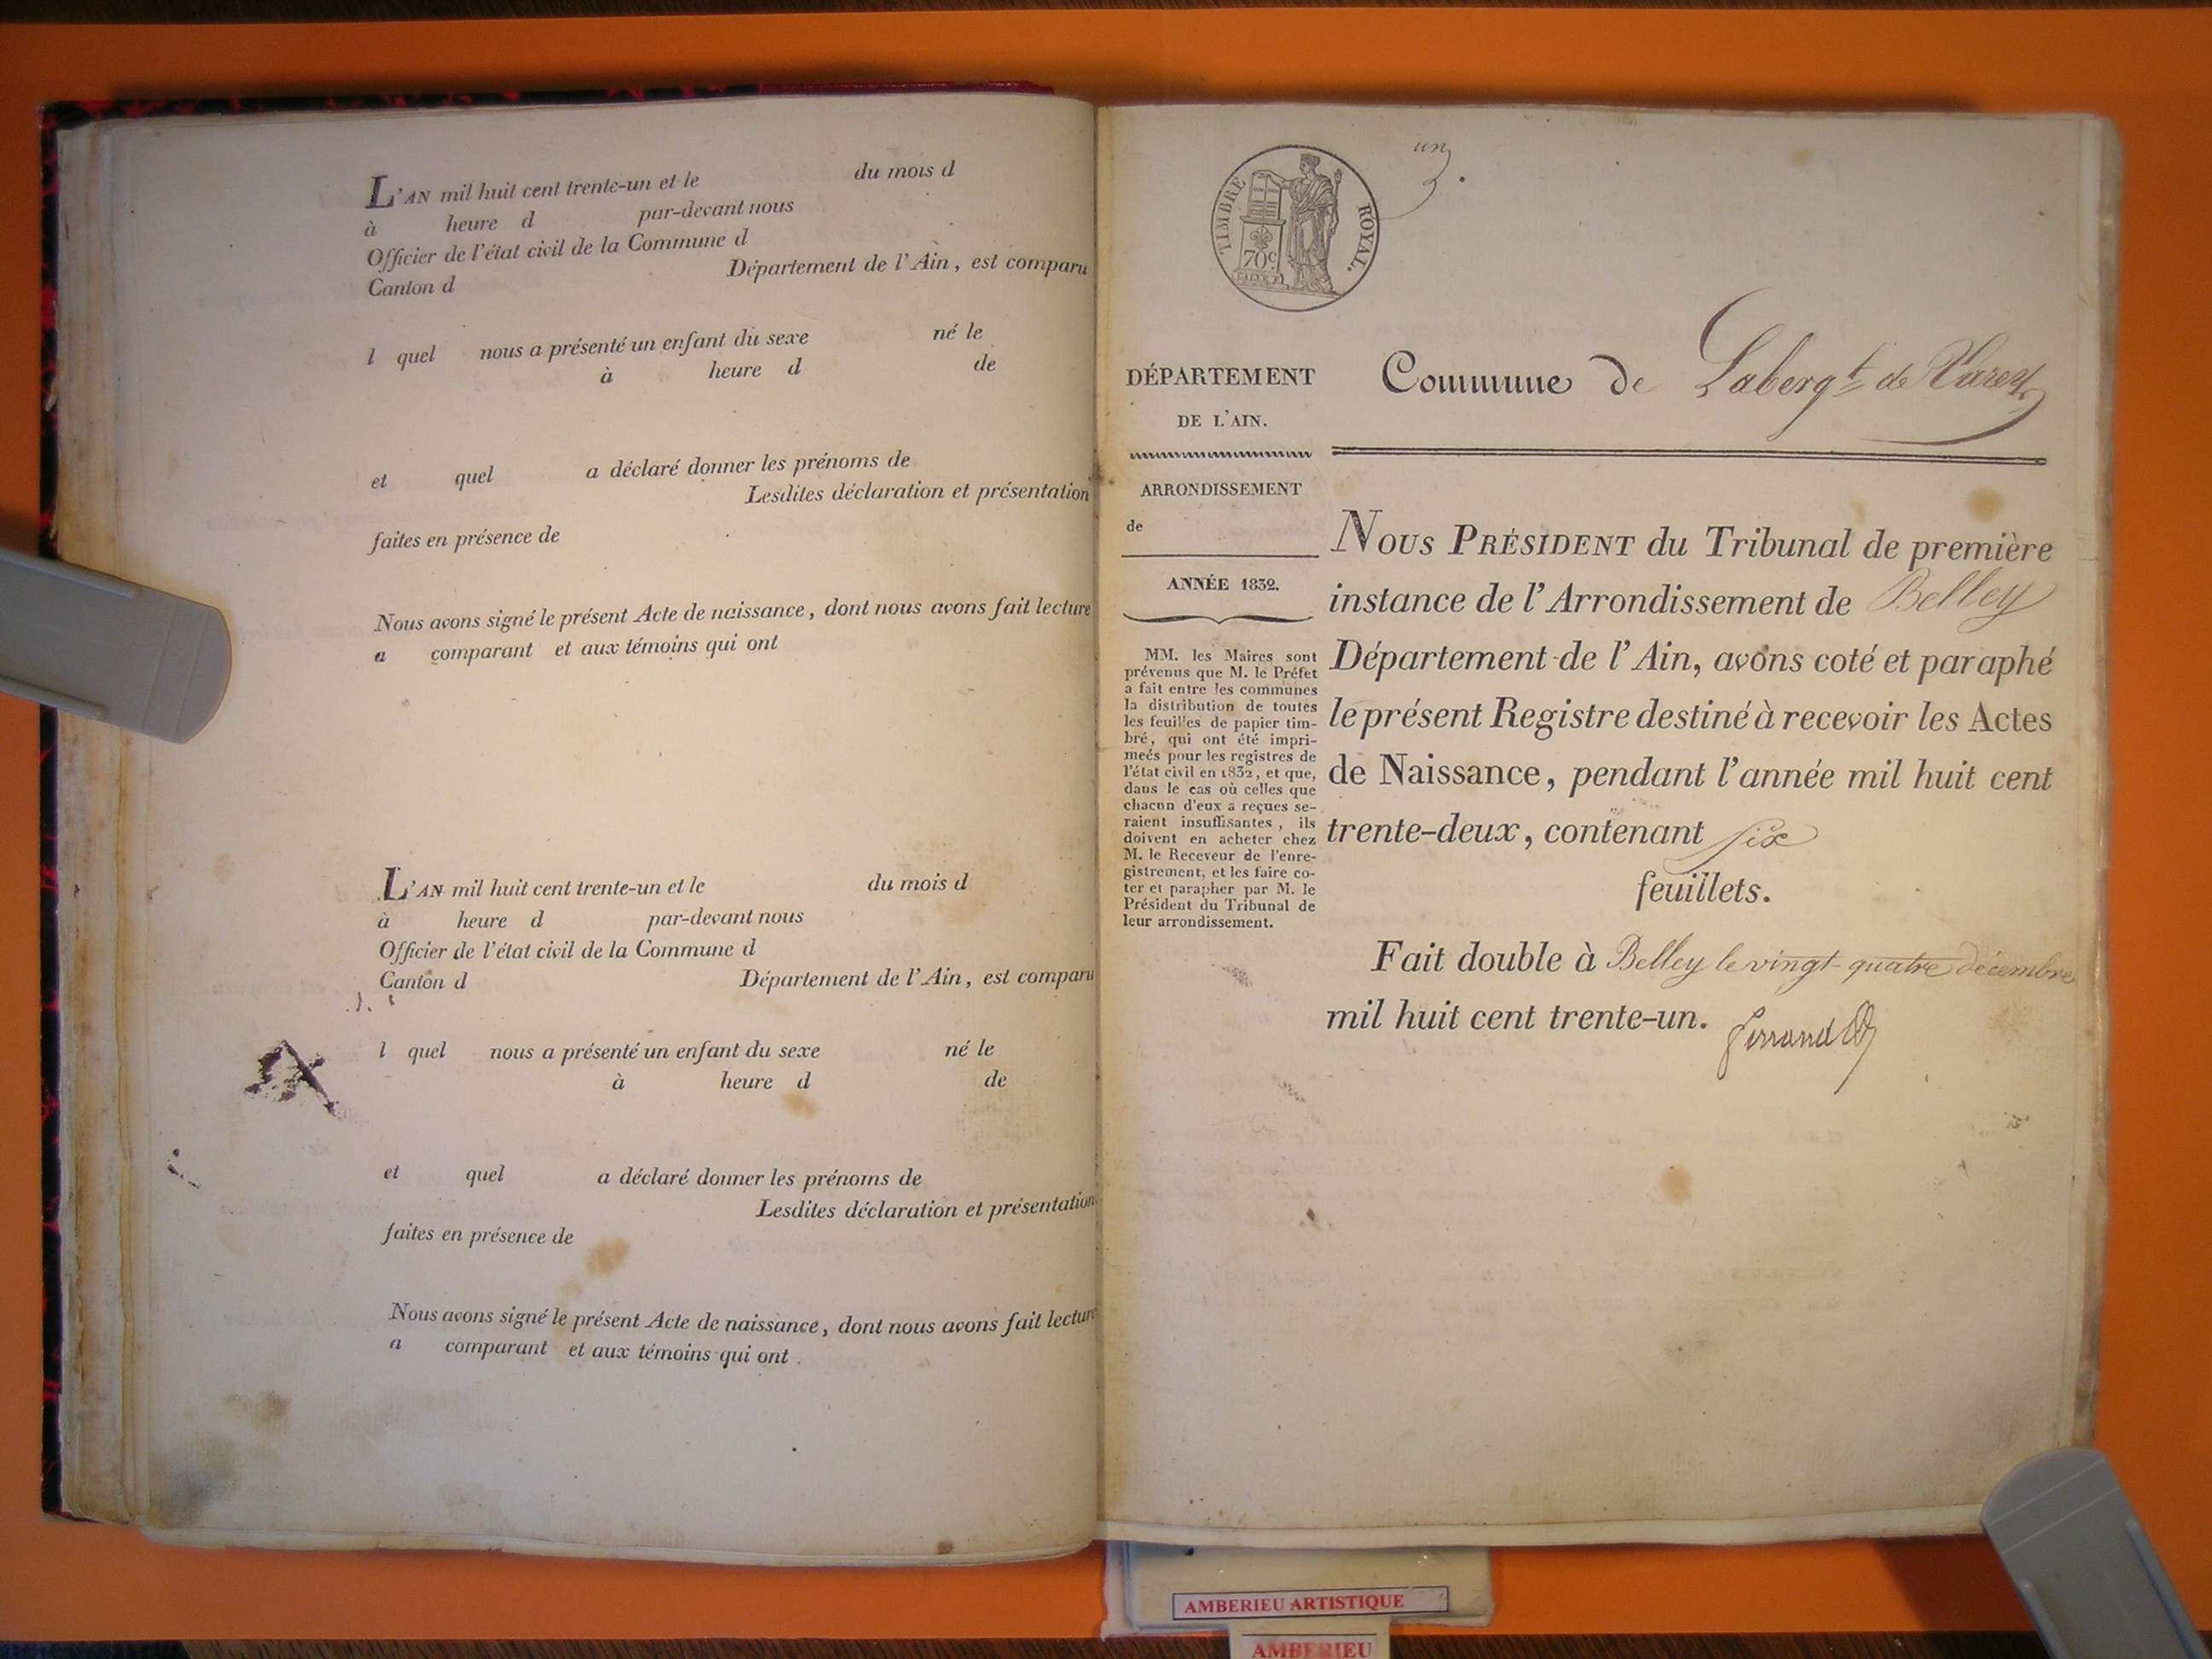 L'AN mil huit cent trente-un et le du mois d
à heure d par-devant nous
Officier de l'état civil de la Commune d
Canton d Département de l'Ain, est comparu
l quel nous a présenté un enfant du sexe né le
à heure d de
et quel a déclaré donner les prénoms de
Lesdites déclaration et présentation
faites en présence de
Nous avons signé le présent Acte de naissance, dont nous avons fait lecture
a comparant et aux témoins qui ont
L'AN mil huit cent trente-un et le du mois d
à heure d par-devant nous
Officier de l'état civil de la Commune d
Canton d Département de l'Ain, est comparu
l quel nous a présenté un enfant du sexe né le
à heure d de
et quel a déclaré donner les prénoms de
Lesdites déclaration et présentation
faites en présence de
Nous avons signé le présent Acte de naissance, dont nous avons fait lecture
a comparant et aux témoins qui ont
un
TIMBRE ROYAL.
70c
DÉPARTEMENT
DE L'AIN.
ARRONDISSEMENT
de
ANNÉE 1832.
MM. les Maires sont
prévenus que M. le Préfet
a fait entre les communes
la distribution de toutes
les feuilles de papier tim-
bré, qui ont été impri-
meés pour les registres de
l'état civil en 1832, et que,
dans le cas où celles que
chacun d'eux a reçues se-
raient insuffisantes, ils
doivent en acheter chez
M. le Receveur de l'enre-
gistrement, et les faire co-
ter et parapher par M. le
Président du Tribunal de
leur arrondissement.
Commune de Labergt de Varey
NOUS PRÉSIDENT du Tribunal de première
instance de l'Arrondissement de Belley
Département de l'Ain, avons coté et paraphé
le présent Registre destiné à recevoir les Actes
de Naissance, pendant l'année mil huit cent
trente-deux, contenant six
feuillets.
Fait double à Belley le vingt-quatre décembre
mil huit cent trente-un.
Ferrand
AMBERIEU ARTISTIQUE
AMBERIEU